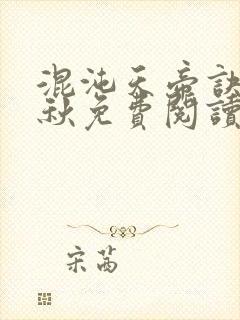 混沌天帝訣
秋免費閱讀
宋茜